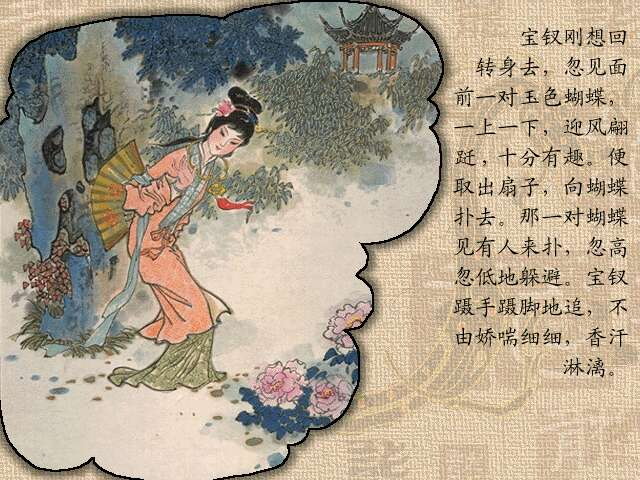 宝钗刚想回
转身去，忽见面
前一对玉色蝴蝶，
一上一下，迎风翩
跹，十分有趣。便
取出扇子，向蝴蝶
扑去。那一对蝴蝶
见有人来扑，忽高
忽低地躲避。宝钗
蹑手蹑脚地追，不
由娇喘细细，香汗
淋漓。